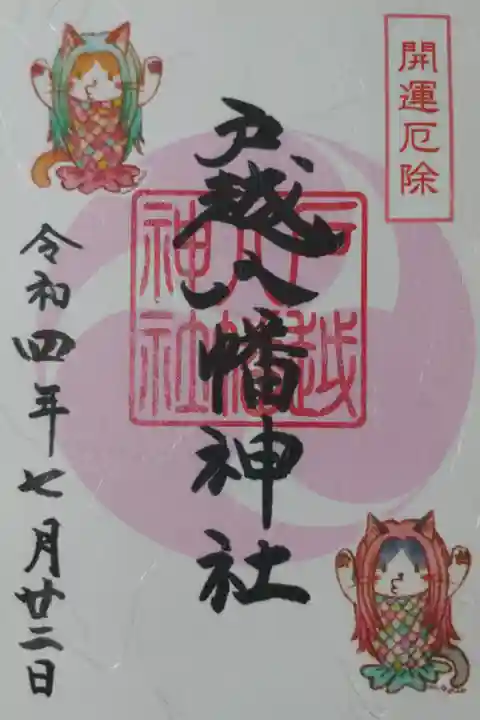 開運厄除
戸越八幡神社
戸越八幡神社
令和四年七月廿二日